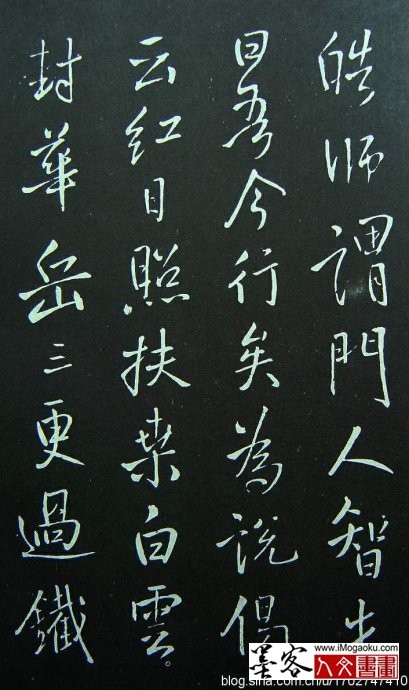 皓师謂門人智
曰吾今行矣為說偈
云紅日照扶桒白雲
封華岳三更過鐵
www.iMogaoku.com
墨客
blog.sina.com.cn/u/1702747410